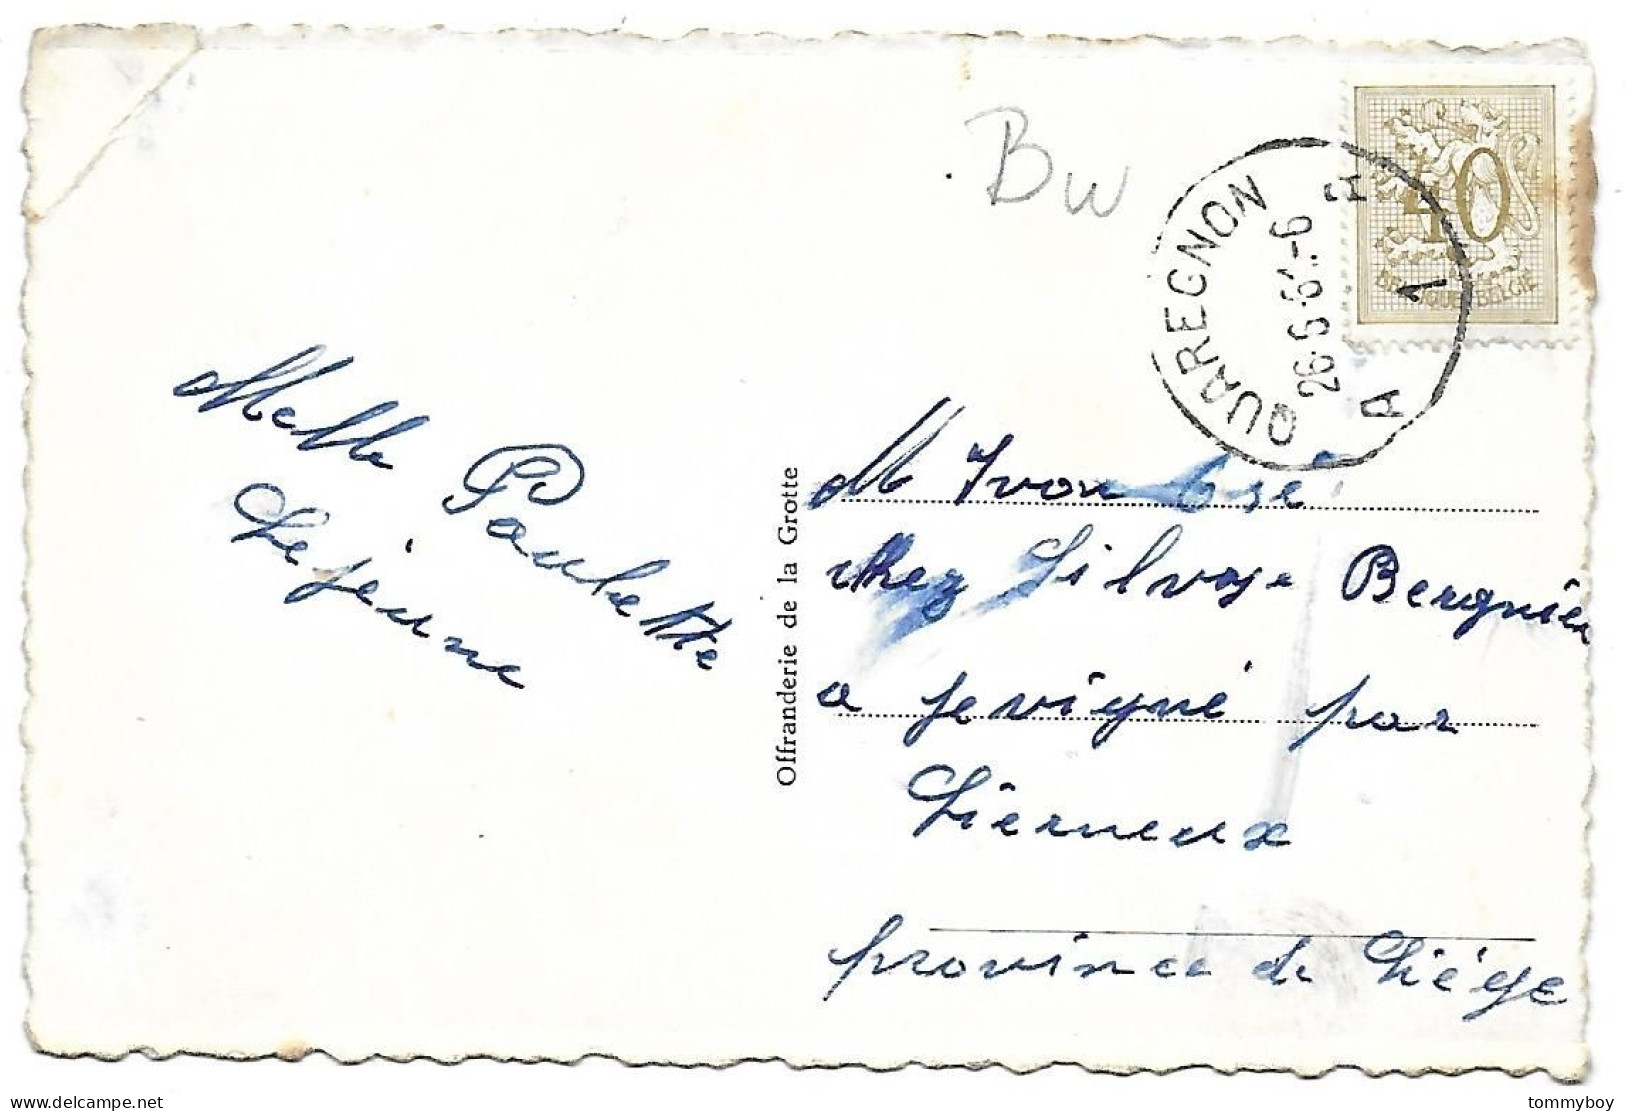 Bw
QUAREGNON
26-5-61.-6
A A
1 A
40
BELGIQUE BELGIË
Melle Paulette
Lejeune
Offranderie de la Grotte
M Yvon
chez Silvoye Bergnier
a Jevigné par
Lierneux
province de Liége
tommyboy